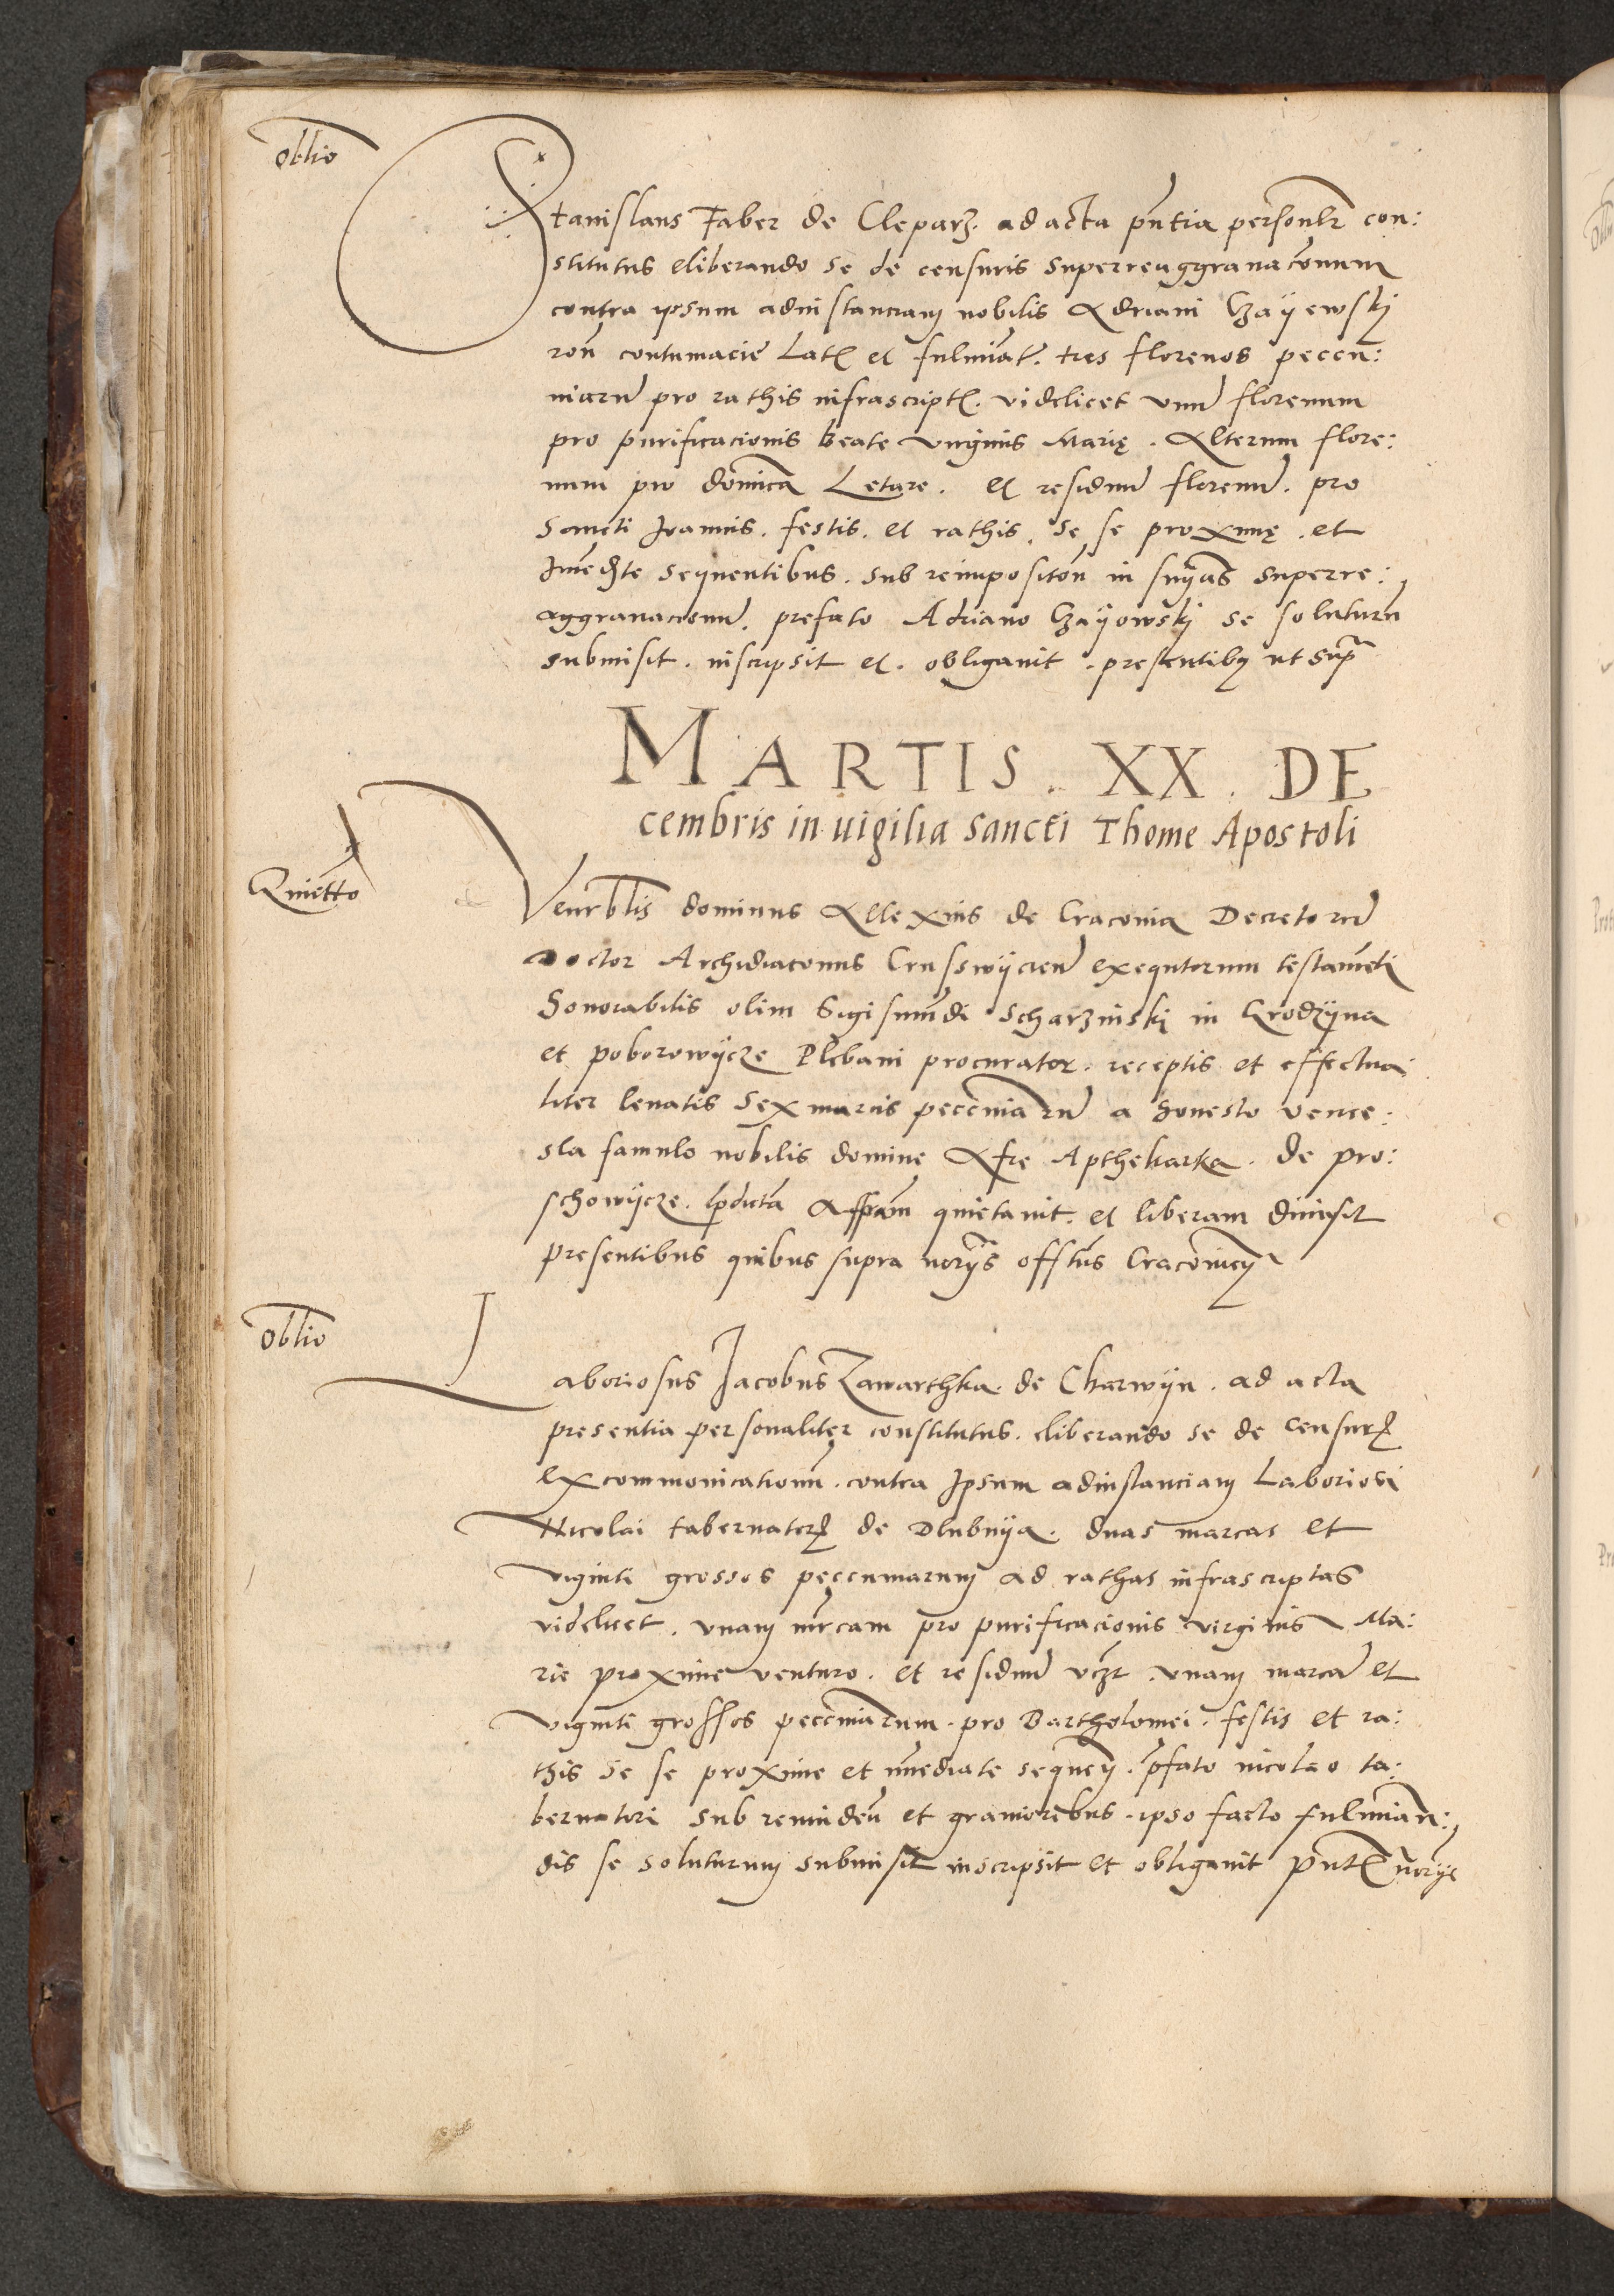 Oblio
Stanislaus Faber de Cleparz. ad acta pn̄tia personlr̄ con:
stitutus eliberando se de censuris superreaggrauacōnum
contra ipsum adinstanciam nobilis Adriani Czayewskj
rōn contumacie Lat et fulminat. tres florenos pecen:
niarū pro rathis infrascript. videlicet vnū florenum
pro purificacionis beate virginis Marię. Alterum flore:
num pro dominica Letare. et residuū florenū. pro
Sancti Joannis. festis. et rathis. se se proximę. et
Immedte sequentibus. sub reimpositon in sniās superre:
aggrauacionū. prefato Adriano Czayowskj se soluturū
submisit. inscripsit et. obligauit. presentibus ut supra
MARTIS. XX. DE
cembris in uigilia Sancti Thome Apostoli
Quiettō
Venrblis dominus Allexius de Craconia Decretorū
Doctor Archidiaconus Crusswijcien̄ exequtorum testamēti
Honorabilis olim Sigismundi Scharzinskj in Grodzyna
et poborowijcze Plebani procurator. receptis et effectua
liter leuatis Sex marcis peccēniarū a honesto vence:
sla famulo nobilis domine Afre Apthekarka. de pro:
schowijcze. prdictā Affram quietauit. et liberam dimisit
presentibus quibus supra norijs offtus Cracouien
Oblio
Laboriosus Jacobus Zawarthka. de Charwijn. ad acta
presentia personaliter constitutus. eliberando se de censur
excommonicationū. contra Ipsum adinstanciam Laboriosi
Nicolai tabernator de Dlubnija. duas marcas et
viginti grossos peccuniarum ad rathas infrascriptas
videlicet. vnam mrcam pro purificacionis virginis Ma:
rie proxime venturo. et residuū vczt. vnam marcā et
viginti grossos peccēniarum. pro Bartholomei. festis et ra:
this se se proxime et immediate sequen. pfato nicolao ta:
bernatori sub remindeū et grauioribus. ipso facto fulminan:
dis se soluturum submisit inscripsit et obligauit pn̄t norijs